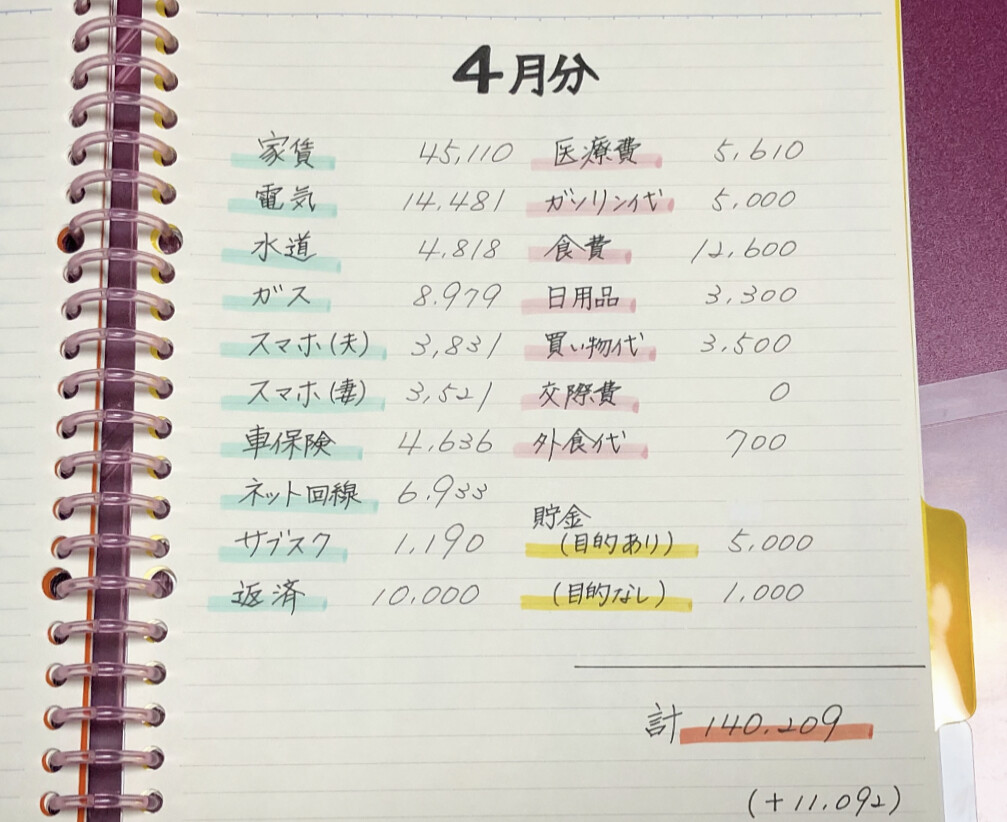 4月分
家賃 45,110
電気 14,481
水道 4,818
ガス 8,979
スマホ(夫) 3,831
スマホ(妻) 3,521
車保険 4,636
ネット回線 6,933
サブスク 1,190
返済 10,000
医療費 5,610
ガソリン代 5,000
食費 12,600
日用品 3,300
買い物代 3,500
交際費 0
外食代 700
貯金
(目的あり) 5,000
(目的なし) 1,000
計 140,209
(+11,092)